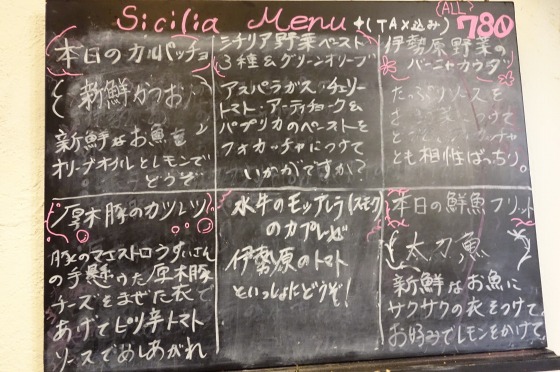 Sicilia Menu (TAX込み) (ALL) 780
本日のカルパッチョ
新鮮かつお
新鮮なお魚を
オリーブオイルとレモンで
どうぞ
シチリア野菜ペースト
3種&グリーンオリーブ
アスパラガス・チェリー
トマト・アーティチョーク&
パプリカのペーストを
フォカッチャにつけて
いかがですか?
伊勢原野菜の
バーニャカウダ
たっぷりソースを
つけて
とも相性ばっちり。
厚木豚のカツレツ
豚のマエストロウダいさん
の手懸けた厚木豚
チーズをまぜた衣で
あげてピリ辛トマト
ソースでめしあがれ
水牛のモッツァレラ(スモーク)
のカプレーゼ
伊勢原のトマト
といっしょにどうぞ!
本日の鮮魚フリット
太刀魚
新鮮なお魚に
サクサクの衣をつけて。
お好みでレモンをかけて。